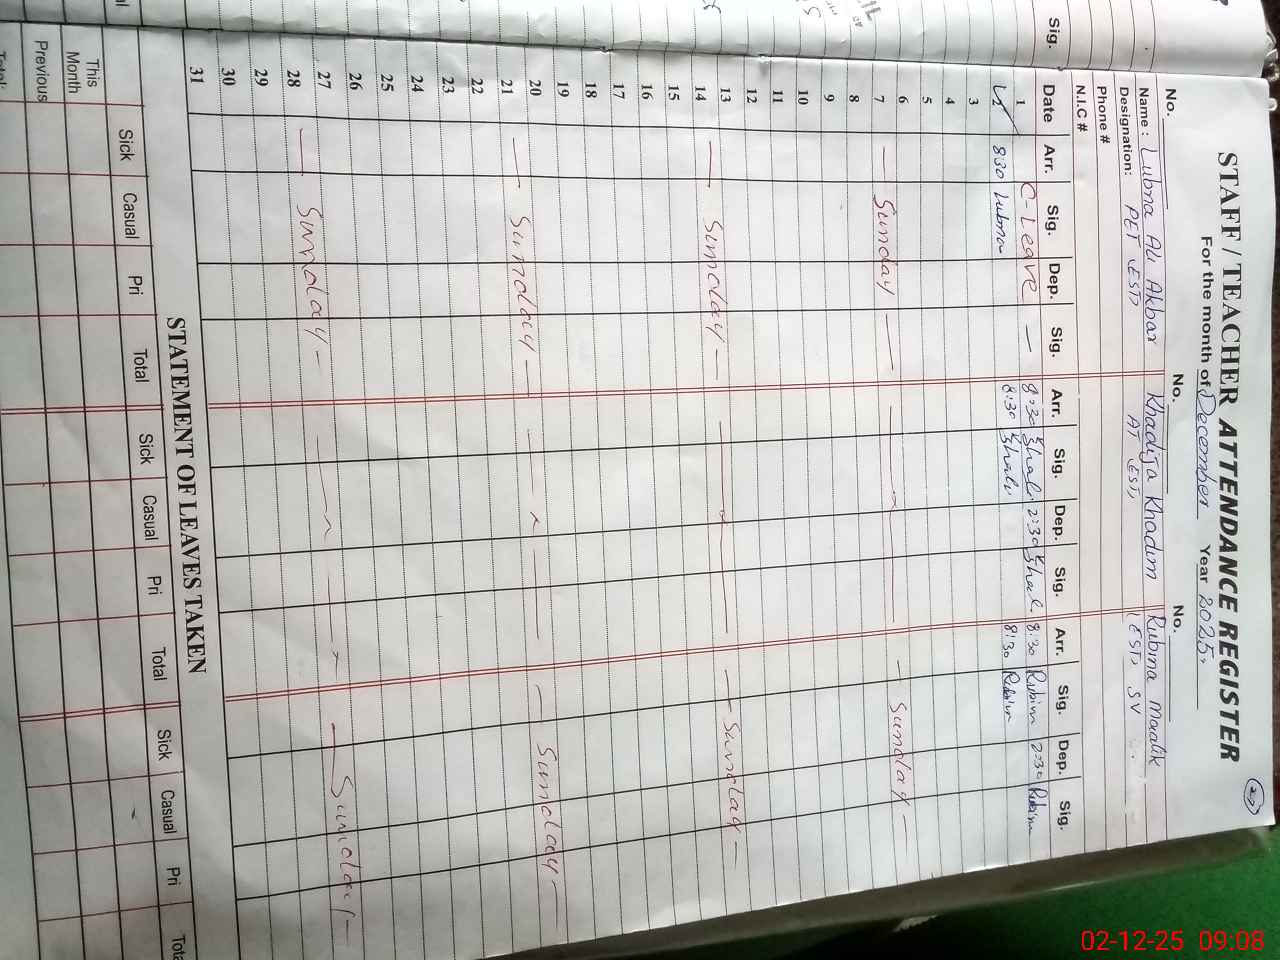 STAFF / TEACHER ATTENDANCE REGISTER
For the month of December Year 2025.
No. No. No.
Name : Lubna Ali Akbar Khadija Khadim Rubina Maalik
Designation: PET (EST) AT (EST) (EST) SV
Phone #
N.I.C #
Date Arr. Sig. Dep. Sig. Arr. Sig. Dep. Sig. Arr. Sig. Dep. Sig.
1 C-Leave — 8:30 Khali 2:30 Khali 8:30 Rubina 2:30 Rubina
2 830 Lubna 8:30 Khali 8:30 Rubina
3
4
5
6
7 — Sunday — — Sunday —
8
9
10
11
12
13
14 — Sunday — — Sunday —
15
16
17
18
19
20
21 — Sunday — — Sunday —
22
23
24
25
26
27
28 — Sunday — — Sunday —
29
30
31
STATEMENT OF LEAVES TAKEN
Sick Casual Pri Total Sick Casual Pri Total Sick Casual Pri
This Month
Previous
Sig.
02-12-25 09:08